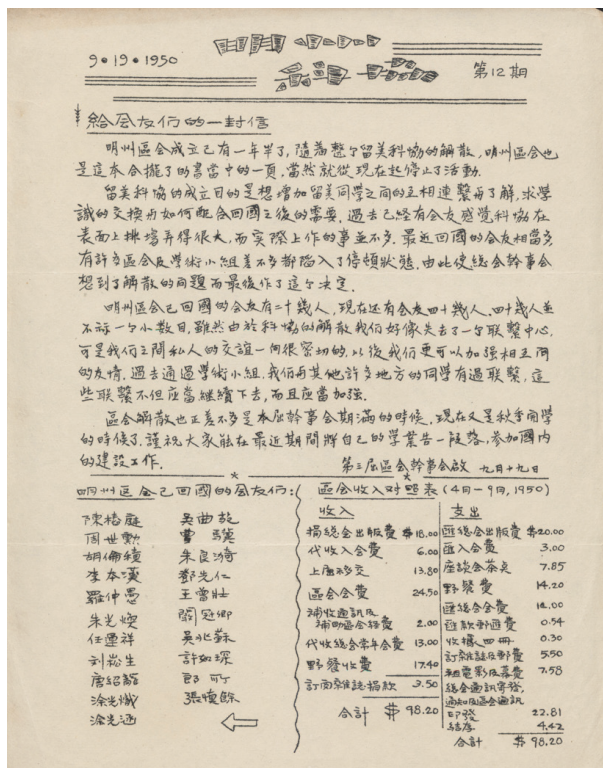 9·19·1950
第12期
給会友们的一封信
明州區会成立已有一年半了,隨着整个留美科協的解散,明州區会也
是這本合攏了的書當中的一頁,當然就從現在起停止了活動.
留美科協的成立目的是想增加留美同学之间的互相連繫与了解,求学
識的交換与如何配合回國之後的需要,過去已經有会友感覚科協在
表面上排塲弄得很大,而实際上作的事並不多.最近回國的会友相當多
有許多區会及学術小組差不多都陷入了停頓狀態,由此使総会幹事会
想到了解散的问題而最後作了這个决定.
明州區会已回國的会友有二十幾人,現在还有会友四十幾人,四十幾人並
不祘一个小数目,雖然由於科協的解散我们好像失去了一个联繫中心,
可是我们之間私人的友誼一向很密切的,以後我们更可以加强相互间
的友情.過去通過学術小組,我们与其他許多地方的同学有過联繫,這
些联繫不但应當継續下去,而且应當加强.
區会解散也正差不多是本屆幹事会期滿的時候,現在又是秋季開学
的時候了,謹祝大家能在最近期間將自己的学業告一段落,参加國内
的建設工作.
第三屆區会幹事会啟 九月十九日
明州區会已回國的会友们:
陳椿庭 吳曲故
周世勳 曹驥
胡倫積 朱良漪
李本漢 鄧光仁
羅仲愚 王曾壮
朱光煥 關冠卿
任運祥 吳兆蘇
刘崧生 許如琛
唐紹龍 郎可
涂光熾 張慎餘
涂光涵
區会收入对照表(4月—9月,1950)
收入
捐総会出版費 $18.00
代收入会費 6.00
上屆移交 13.80
區会会費 24.50
補收通訊及
補助區会経費 2.00
代收総会常年会費 13.00
野餐收費 17.40
訂閱雜誌捐款 3.50
合計 $98.20
支出
匯総会出版費 $20.00
匯入会費 3.00
座談会茶点 7.85
野餐費 14.20
匯総会会費 12.00
匯款郵匯費 0.54
收據四冊 0.30
訂雜誌及郵費 5.50
租電影及幕費 7.58
総会通訊寄發,
通知及區会通訊
印發 22.81
結存 4.42
合計 $98.20